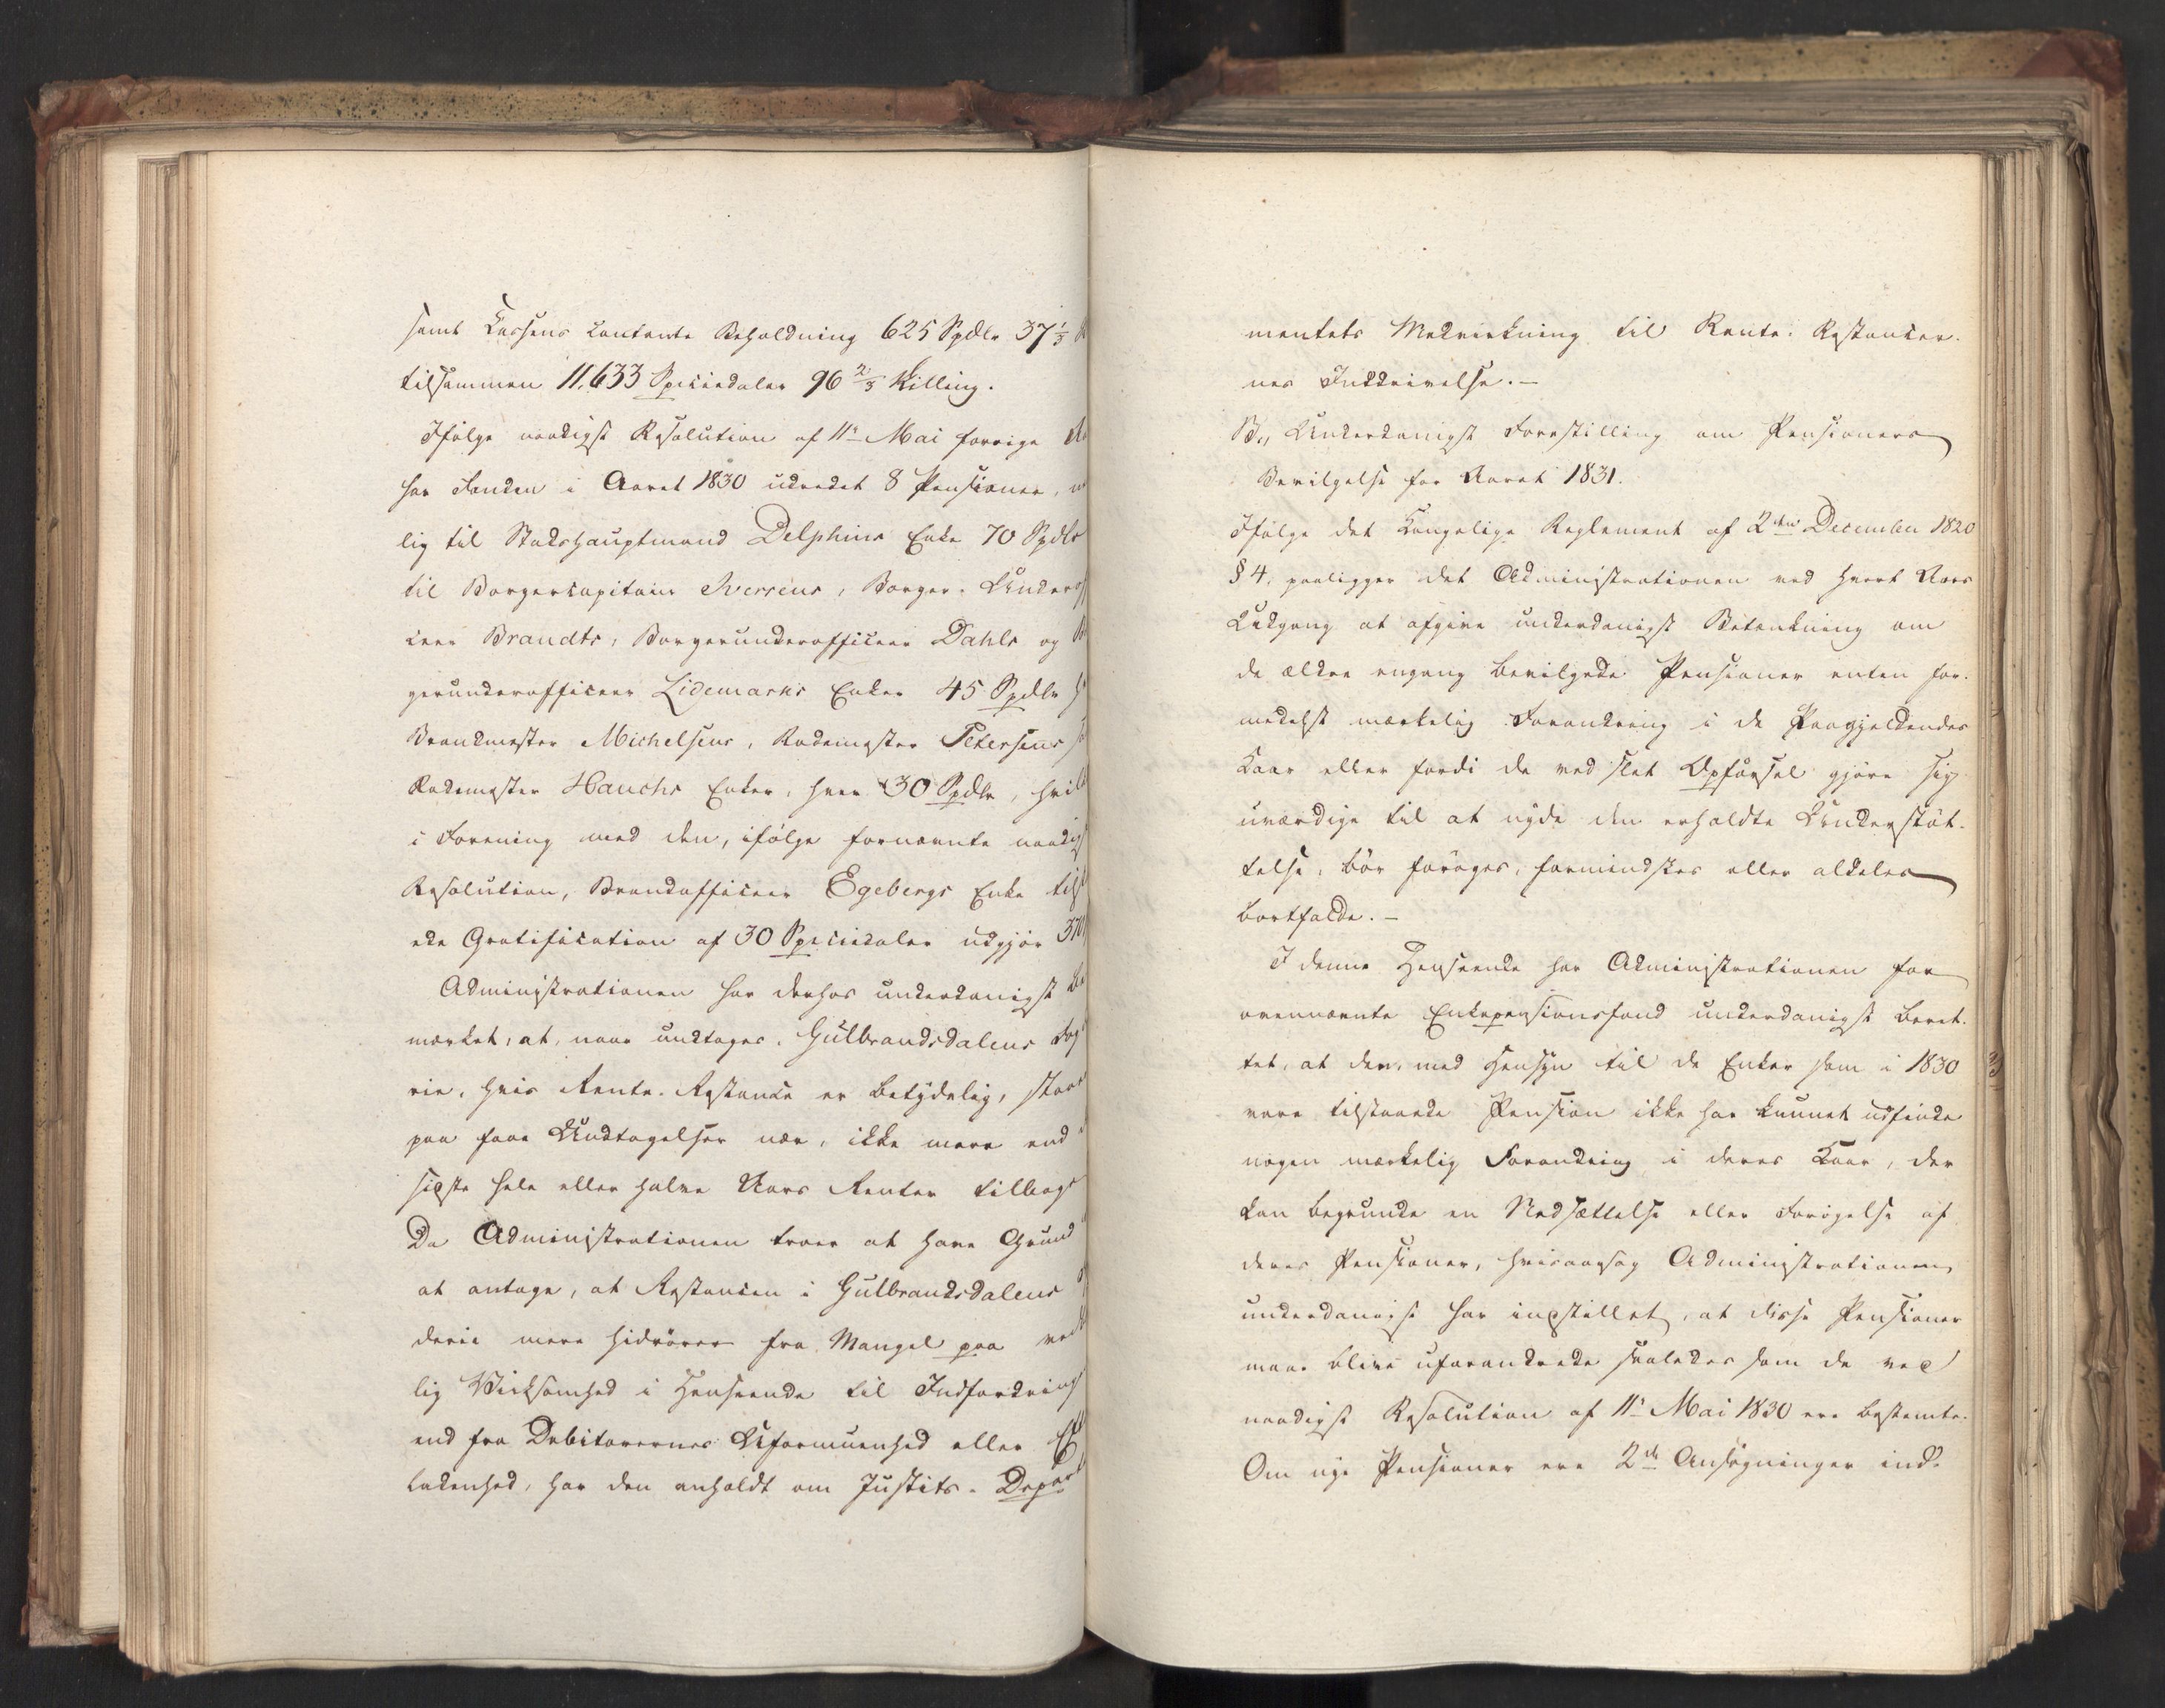 samt Kassens contante Beholdning 625 Spdlr 37 1/3
tilsammen 11,633 Speciedaler 96 2/3 Skilling.
Ifölge naadigst Resolution af 11te Mai forrige
har Fonden i Aaret 1830 udredet 8 Pensioner,
lig til Stadshauptmand Delphins Enke 70 Spdlr
til Borgercapitain Iversens, Borger-Underof
ceer Brandts, Borgerunderofficeer Dahls og
gerunderofficeer Lidemarks Enker 45 Spdlr
Brandmester Michelsens, Rodemester Petersens
Rodemester Hauchs Enker, hver 30 Spdlr, hvil
i Forening med den, ifölge fornævnte naadigst
Resolution, Brandofficeer Egebergs Enke tilst
ede Gratification af 30 Speciedaler udgjör 370
Administrationen har derhos underdanigst be
mærket, at, naar undtages Gulbrandsdalens Fog
rie, hvis Rente-Restance er betydelig, staar
paa faae Undtagelser nær, ikke mere end
sidste hele eller halve Aars Renter tilbage
Da Administrationen troer at have Grund
at antage, at Restancen i Gulbrandsdalens
derie mere hidrörer fra Mangel paa ved
lig Virksomhed i Henseende til Indfordring
end fra Debitorernes Uformuenhed eller
ladenhed, har den anholdt om Justits-Depart
mentets Medvirkning til Rente-Restancer-
nes Inddrivelse.-
B., Underdanigst Forestilling om Pensioners
Bevilgelse for Aaret 1831.
Ifölge det Kongelige Reglement af 2den December 1820
§ 4, paaligger det Administrationen ved hvert Aars
Udgang at afgive underdanigst Betænkning om
de ældre engang bevilgede Pensioner enten for-
medelst mærkelig Forandring i de Paagjeldendes
Kaar eller fordi de ved slet Opförsel gjöre sig
uværdige til at nyde den erholdte Understöt-
telse, bör foröges, formindskes eller aldeles
bortfalde.-
I denne Henseende har Administrationen for
ovennævnte Enkepensionsfond underdanigst beret-
tet, at den, med Hensyn til de Enker som i 1830
vare tilstaaede Pension ikke har kunnet udfinde
nogen mærkelig Forandring i deres Kaar, der
kan begrunde en Nedsættelse eller Forögelse af
deres Pensioner, hvisaarsag Administrationen
underdanigst har indstillet, at disse Pensioner
maae blive uforandrede saaledes som de ved
naadigst Resolution af 11te Mai 1830 ere bestemte.
Om nye Pensioner ere 2de Ansögninger ind-